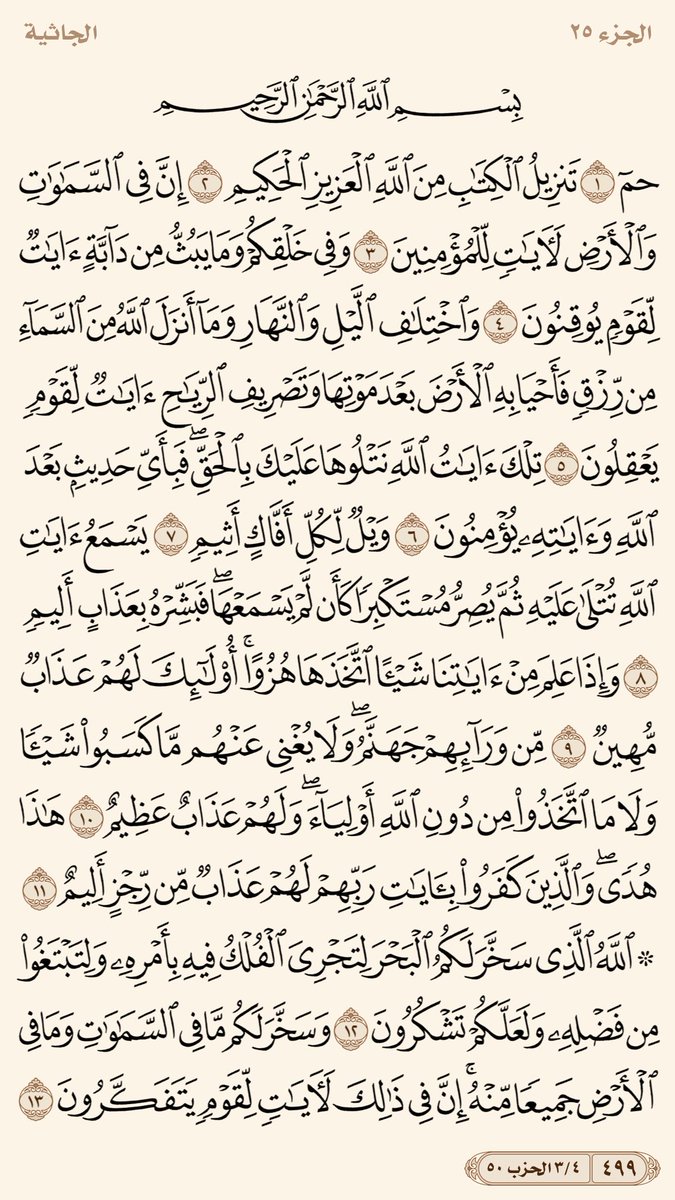 الجزء ٢٥ الجاثية
بِسْمِ ٱللَّهِ ٱلرَّحْمَٰنِ ٱلرَّحِيمِ
حمٓ ١ تَنزِيلُ ٱلْكِتَٰبِ مِنَ ٱللَّهِ ٱلْعَزِيزِ ٱلْحَكِيمِ ٢ إِنَّ فِى ٱلسَّمَٰوَٰتِ
وَٱلْأَرْضِ لَءَايَٰتٍ لِّلْمُؤْمِنِينَ ٣ وَفِى خَلْقِكُمْ وَمَا يَبُثُّ مِن دَآبَّةٍ ءَايَٰتٌ
لِّقَوْمٍ يُوقِنُونَ ٤ وَٱخْتِلَٰفِ ٱلَّيْلِ وَٱلنَّهَارِ وَمَآ أَنزَلَ ٱللَّهُ مِنَ ٱلسَّمَآءِ
مِن رِّزْقٍ فَأَحْيَا بِهِ ٱلْأَرْضَ بَعْدَ مَوْتِهَا وَتَصْرِيفِ ٱلرِّيَٰحِ ءَايَٰتٌ لِّقَوْمٍ
يَعْقِلُونَ ٥ تِلْكَ ءَايَٰتُ ٱللَّهِ نَتْلُوهَا عَلَيْكَ بِٱلْحَقِّۖ فَبِأَىِّ حَدِيثٍۭ بَعْدَ
ٱللَّهِ وَءَايَٰتِهِۦ يُؤْمِنُونَ ٦ وَيْلٌ لِّكُلِّ أَفَّاكٍ أَثِيمٍ ٧ يَسْمَعُ ءَايَٰتِ
ٱللَّهِ تُتْلَىٰ عَلَيْهِ ثُمَّ يُصِرُّ مُسْتَكْبِرًا كَأَن لَّمْ يَسْمَعْهَاۖ فَبَشِّرْهُ بِعَذَابٍ أَلِيمٍ
٨ وَإِذَا عَلِمَ مِنْ ءَايَٰتِنَا شَيْـًٔا ٱتَّخَذَهَا هُزُوًاۚ أُو۟لَٰٓئِكَ لَهُمْ عَذَابٌ
مُّهِينٌ ٩ مِّن وَرَآئِهِمْ جَهَنَّمُۖ وَلَا يُغْنِى عَنْهُم مَّا كَسَبُوا۟ شَيْـًٔا
وَلَا مَا ٱتَّخَذُوا۟ مِن دُونِ ٱللَّهِ أَوْلِيَآءَۖ وَلَهُمْ عَذَابٌ عَظِيمٌ ١٠ هَٰذَا
هُدًىۖ وَٱلَّذِينَ كَفَرُوا۟ بِـَٔايَٰتِ رَبِّهِمْ لَهُمْ عَذَابٌ مِّن رِّجْزٍ أَلِيمٌ ١١
۞ ٱللَّهُ ٱلَّذِى سَخَّرَ لَكُمُ ٱلْبَحْرَ لِتَجْرِىَ ٱلْفُلْكُ فِيهِ بِأَمْرِهِۦ وَلِتَبْتَغُوا۟
مِن فَضْلِهِۦ وَلَعَلَّكُمْ تَشْكُرُونَ ١٢ وَسَخَّرَ لَكُم مَّا فِى ٱلسَّمَٰوَٰتِ وَمَا فِى
ٱلْأَرْضِ جَمِيعًا مِّنْهُۚ إِنَّ فِى ذَٰلِكَ لَءَايَٰتٍ لِّقَوْمٍ يَتَفَكَّرُونَ ١٣
٤٩٩ ٣/٤ الحزب ٥٠